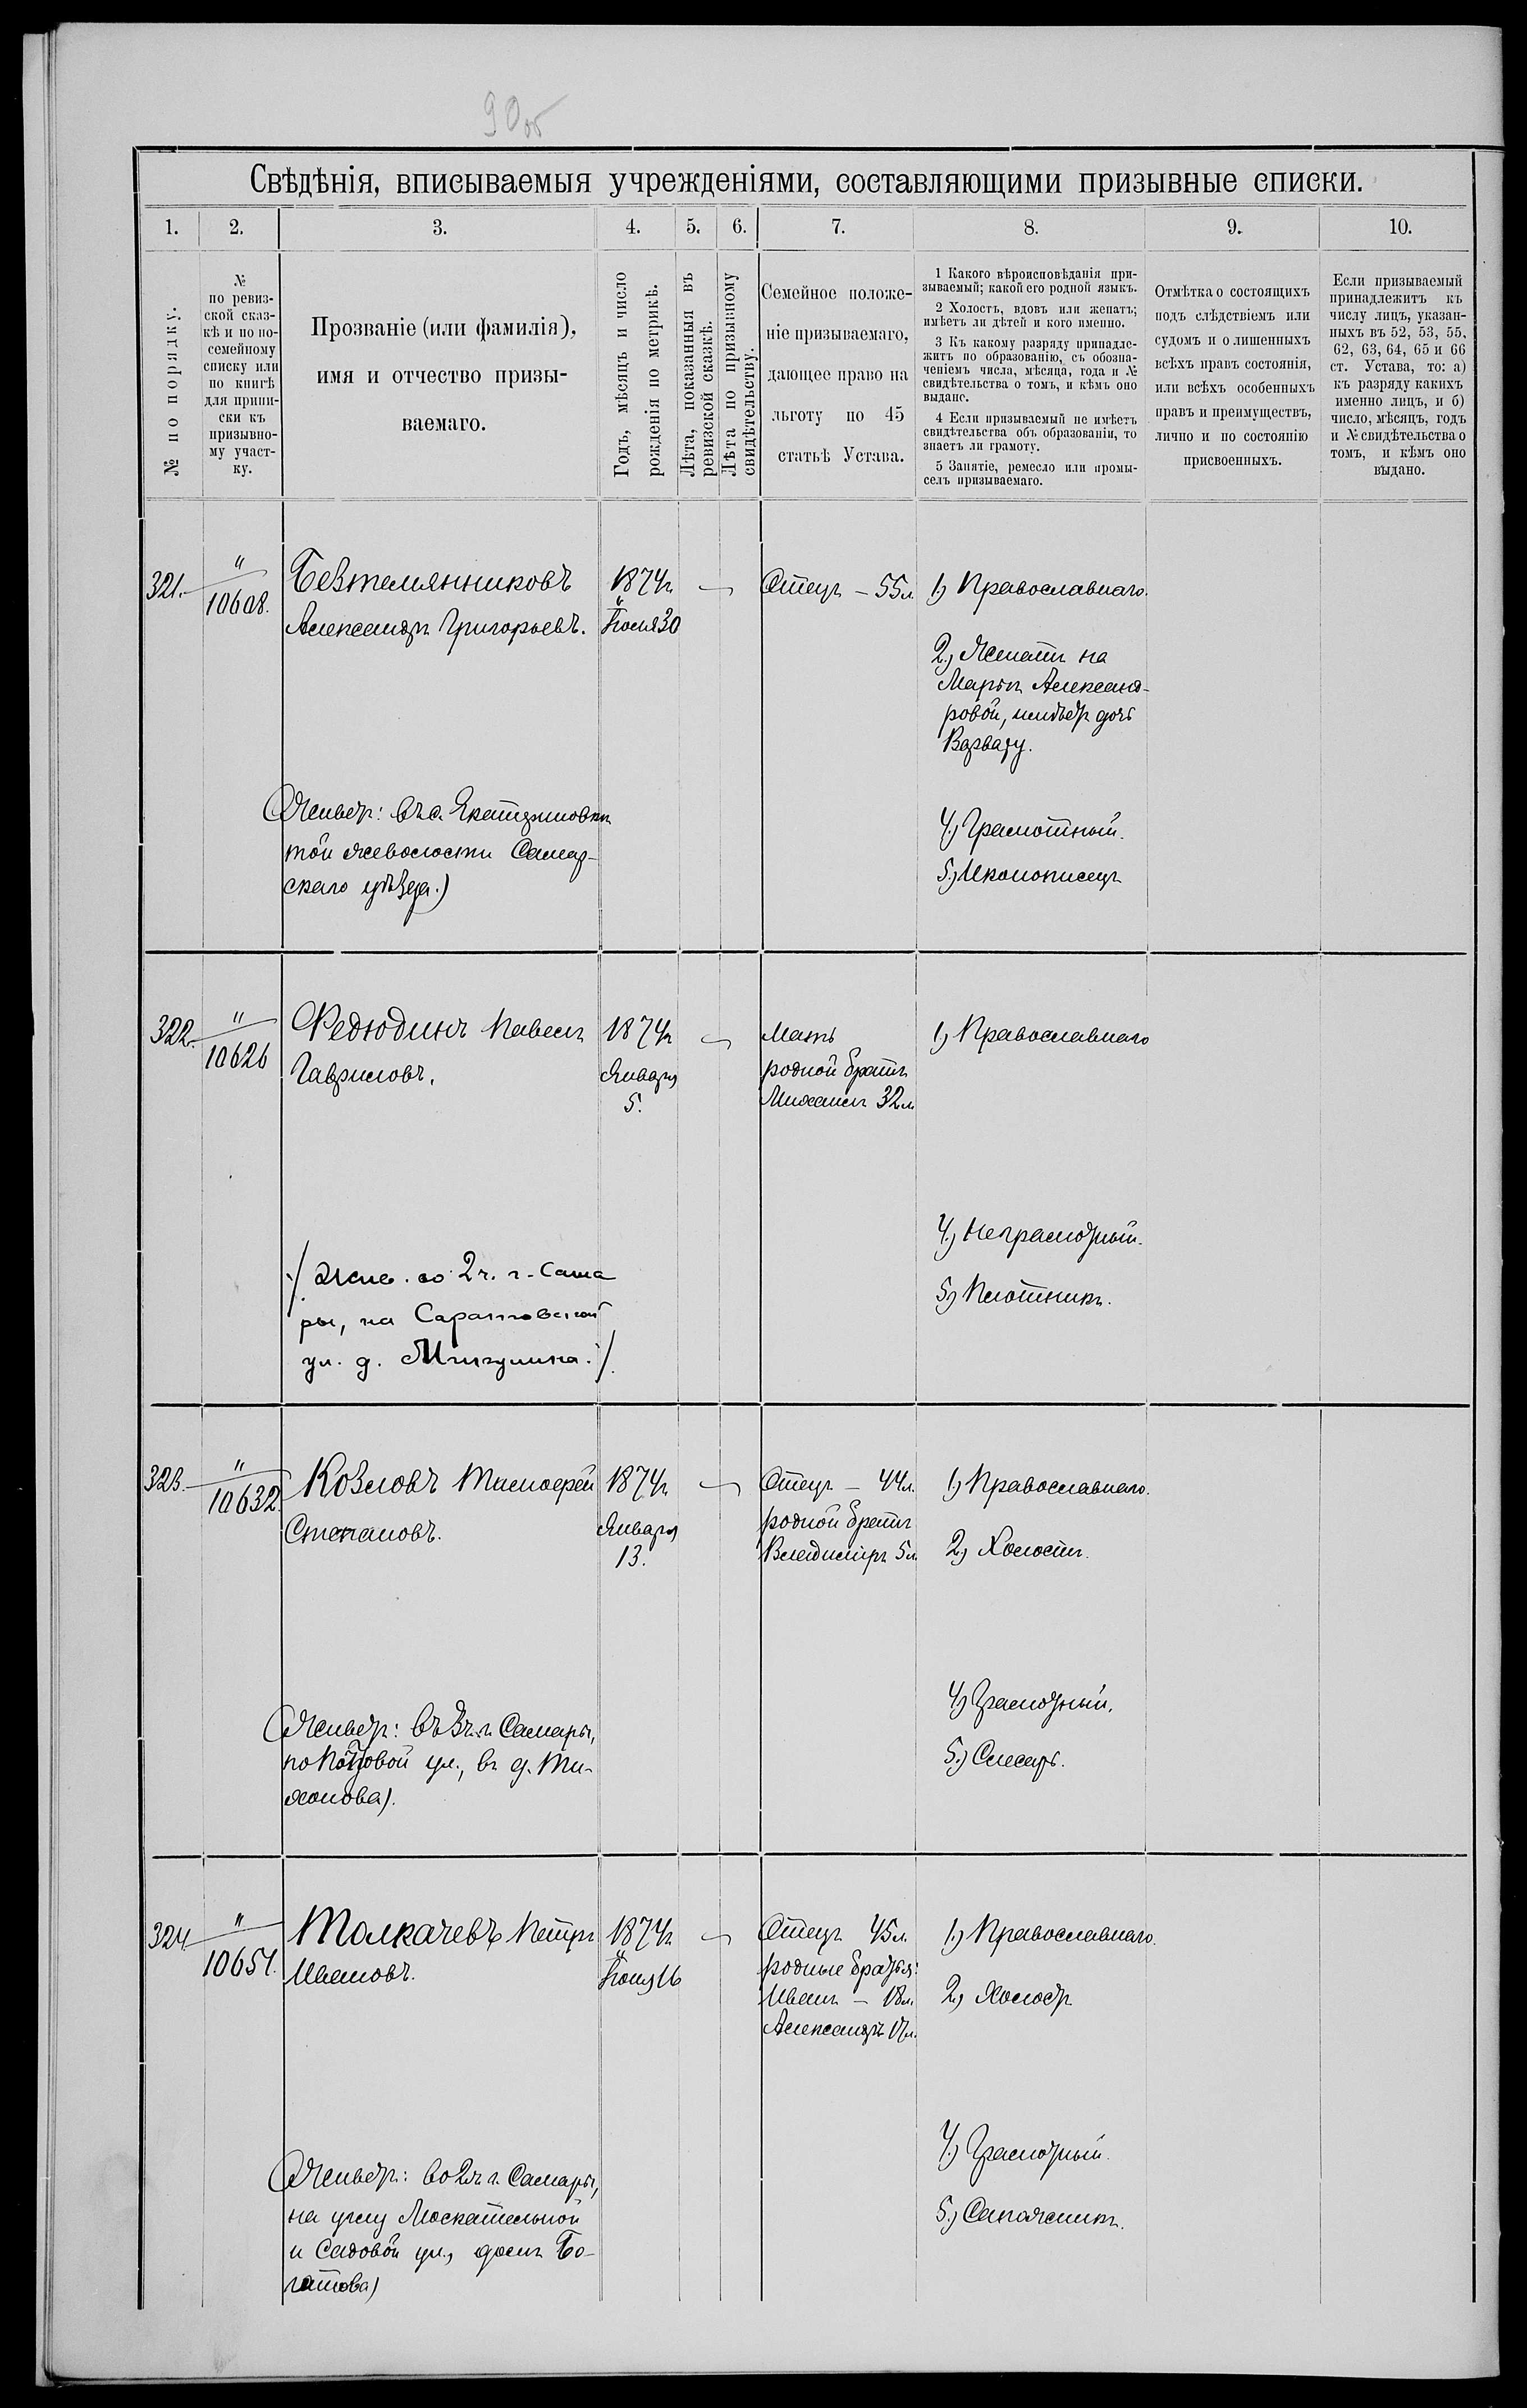 90об
Свѣдѣнія, вписываемыя учрежденіями, составляющими призывные списки.
1. 2. 3. 4. 5. 6. 7. 8. 9. 10.
№ по порядку.
№
по ревиз-
ской сказ-
кѣ и по по-
семейному
списку или
по книгѣ
для припи-
ски къ
призывно-
му участ-
ку.
Прозваніе (или фамилія),
имя и отчество призы-
ваемаго.
Годъ, мѣсяцъ и число
рожденія по метрикѣ.
Лѣта, показанныя въ
ревизской сказкѣ.
Лѣта по призывному
свидѣтельству.
Семейное положе-
ніе призываемаго,
дающее право на
льготу по 45
статьѣ Устава.
1 Какого вѣроисповѣданія при-
зываемый; какой его родной языкъ.
2 Холостъ, вдовъ или женатъ;
имѣетъ ли дѣтей и кого именно.
3 Къ какому разряду принадле-
житъ по образованію, съ обозна-
ченіемъ числа, мѣсяца, года и №
свидѣтельства о томъ, и кѣмъ оно
выдано.
4 Если призываемый не имѣетъ
свидѣтельства объ образованіи, то
знаетъ ли грамоту.
5 Занятіе, ремесло или промы-
селъ призываемаго.
Отмѣтка о состоящихъ
подъ слѣдствіемъ или
судомъ и о лишенныхъ
всѣхъ правъ состоянія,
или всѣхъ особенныхъ
правъ и преимуществъ,
лично и по состоянію
присвоенныхъ.
Если призываемый
принадлежитъ къ
числу лицъ, указан-
ныхъ въ 52, 53, 55,
62, 63, 64, 65 и 66
ст. Устава, то: а)
къ разряду какихъ
именно лицъ, и б)
число, мѣсяцъ, годъ
и № свидѣтельства о
томъ, и кѣмъ оно
выдано.
321.
"
10608.
Александръ Григорьевъ.
1874г.
Іюля 30
Отецъ – 55л.
1) Православнаго.
2.) Женатъ на
Марьѣ Александ-
ровой, имѣетъ дочь
Варвару.
4.) Грамотный.
5.) Иконописецъ
(Живетъ: въ с. Екатериновкѣ
той же волости Самар-
скаго уѣзда.)
322.
"
10626
Федюдинъ Павелъ
Гавриловъ.
1874г.
Января
5.
Мать
родной братъ
Михаилъ 32л.
1) Православнаго
4.) Неграмотный.
5) Плотникъ.
/ Жив. во 2 ч. г. Сама
ры, на Саратовской
ул. д. Мигулина. /
323.
"
10632.
Козловъ Тимофей
Степановъ.
1874г.
Января
13.
Отецъ – 44л.
родной братъ
Владиміръ 5л.
1) Православнаго.
2) Холостъ.
4) Грамотный.
5.) Слесарь.
(Живетъ: въ 3 ч. г. Самары,
по ул., въ д. Ти-
хонова).
324.
"
10651.
Толкачевъ Петръ
Ивановъ.
1874г.
Іюня 16
Отецъ 45л.
родные братья:
Иванъ – 18л.
Александръ 17л.
1.) Православнаго.
2.) Холостъ
4.) Грамотный.
5.) Сапожникъ.
(Живетъ: во 2 ч. г. Самары,
на углу Москательной
и Садовой ул., домъ Бо-
гатова)